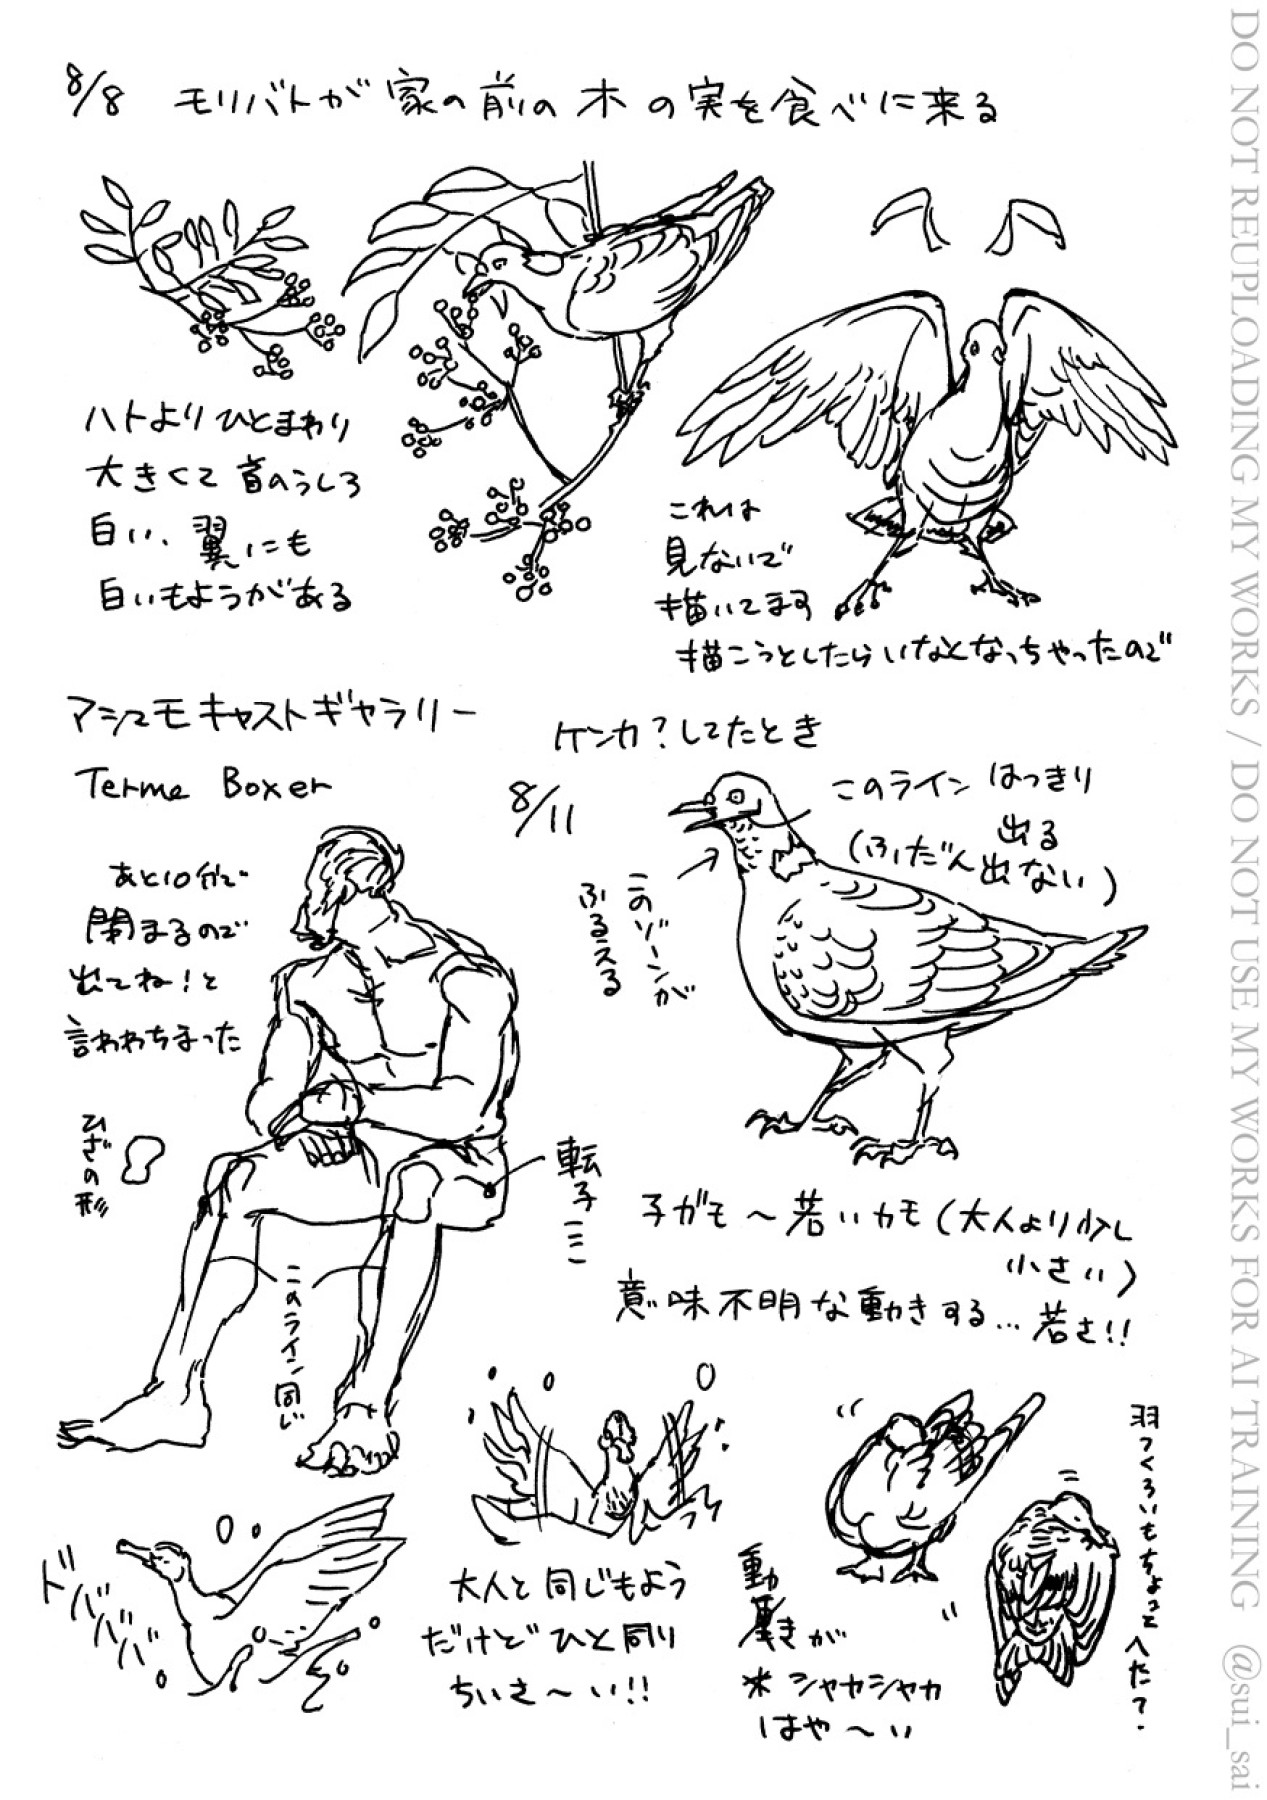 8/8 モリバトが家の前の木の実を食べに来る
ハトよりひとまわり
大きくて首のうしろ
白い、翼にも
白いもようがある
これは
見ないで
描いてます
描こうとしたらいなくなっちゃったので
アシュモキャストギャラリー
Terme Boxer
あと10分で
閉まるので
出てね!と
言われちまった
ひざの形
転子ここ
このライン同じ
8/11
ケンカ?してたとき
このラインはっきり
出る
(ふだん出ない)
このゾーンが
ふるえる
子ガモ〜若いカモ(大人より少し
小さい)
意味不明な動きする…若さ!!
ドババババ
大人と同じもよう
だけどひと回り
ちいさ〜い!!
動きが
シャカシャカ
はや〜い
羽つくろいもちょっとへた?
DO NOT REUPLOADING MY WORKS / DO NOT USE MY WORKS FOR AI TRAINING @sui_sai